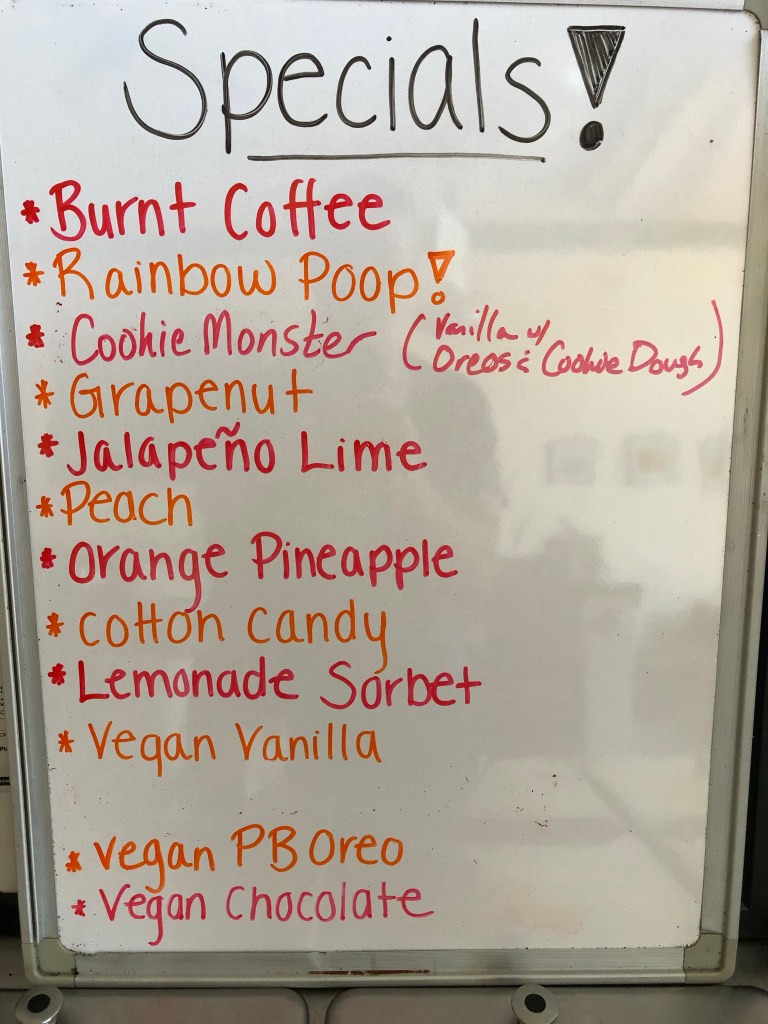 Specials!
* Burnt Coffee
* Rainbow Poop!
* Cookie Monster (Vanilla w/
Oreos & Cookie Dough)
* Grapenut
* Jalapeño Lime
* Peach
* Orange Pineapple
* Cotton Candy
* Lemonade Sorbet
* Vegan Vanilla
* Vegan PB Oreo
* Vegan Chocolate